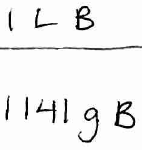 1 L B
1141 g B